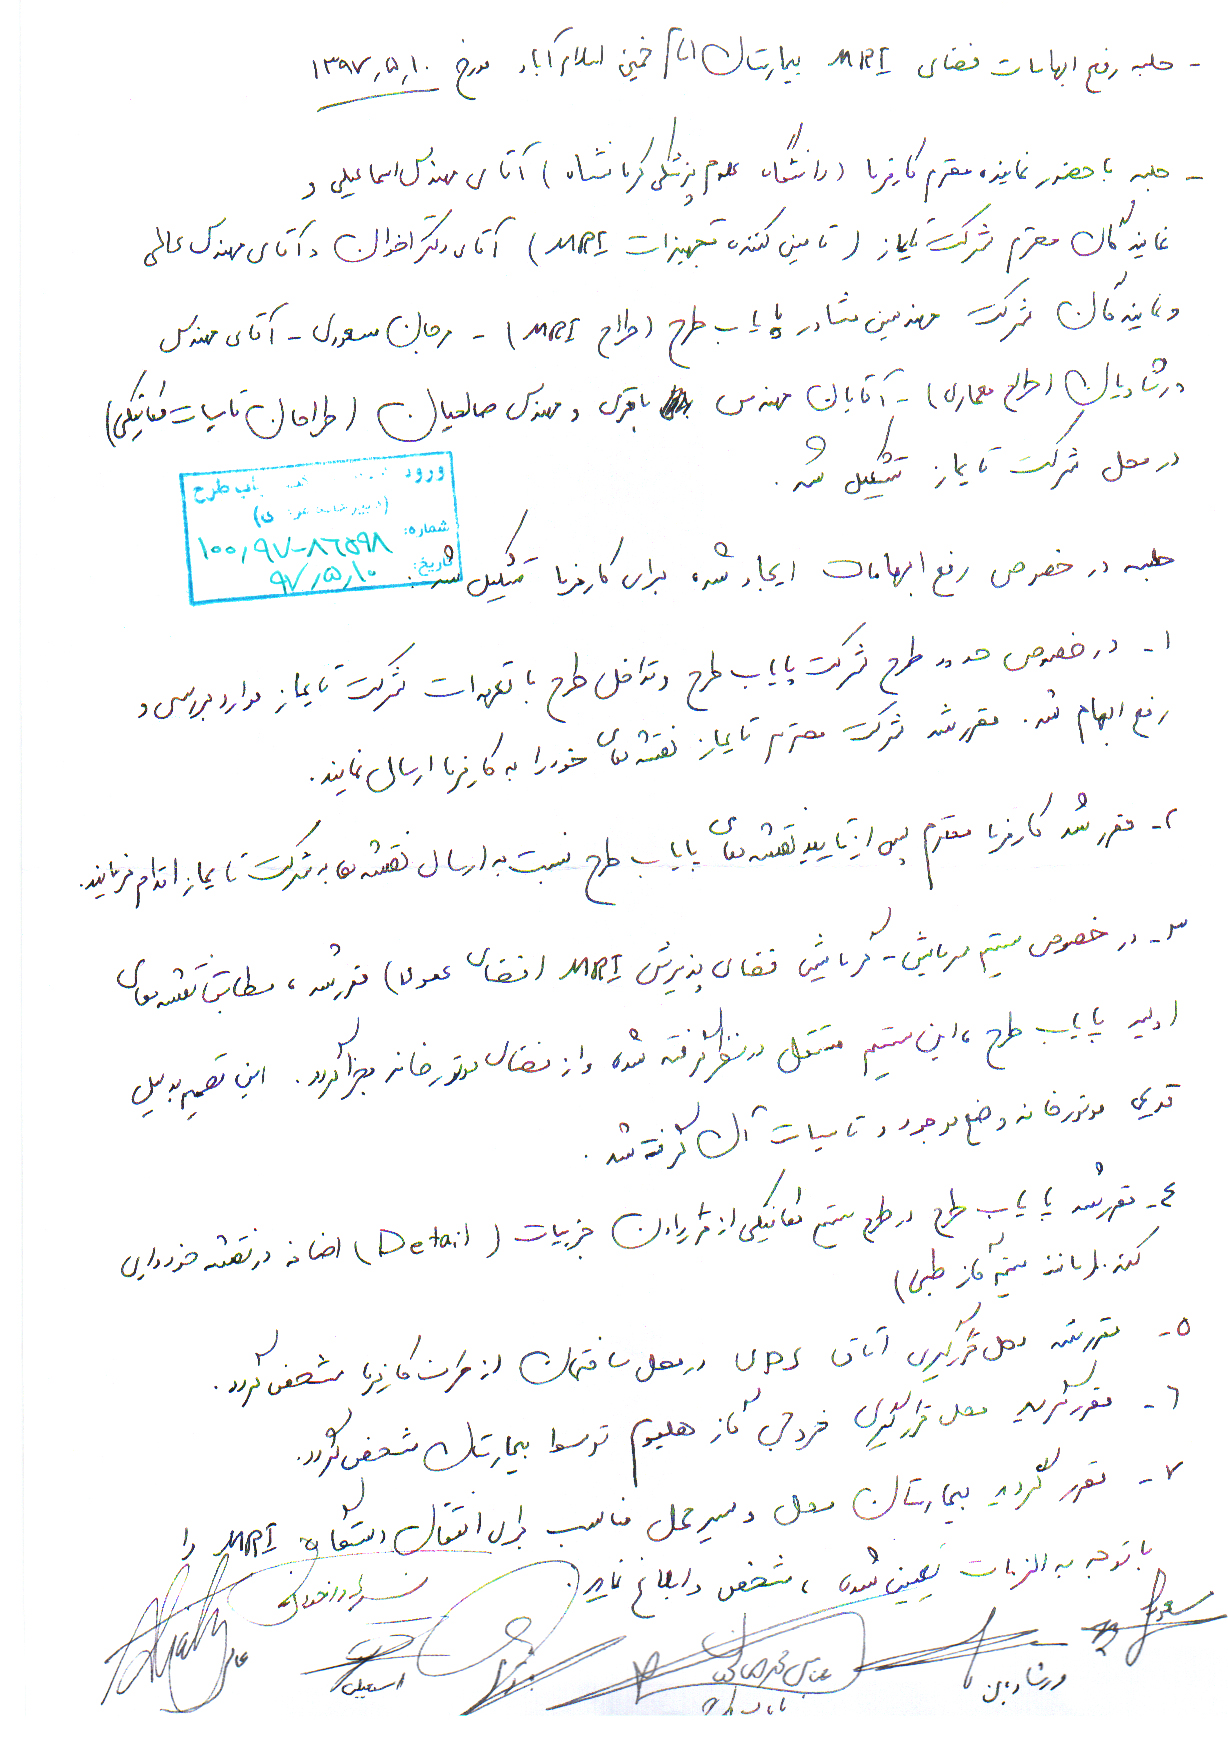 - جلسه رفع ابهامات فضای MRI بیمارستان امام خمینی اسلام آباد مورخ ۱۳۹۷،۵،۱۰
- جلسه با حضور نماینده محترم کارفرما (دانشگاه علوم پزشکی کرمانشاه) آقای مهندس اسماعیلی و
نمایندگان محترم شرکت تایماز (تامین کننده تجهیزات MRI) آقای دکتر اخوان و آقای مهندس عالمی
و نمایندگان شرکت مهندسین مشاور پایاب طرح (طراح MRI) - مرجان سعدی - آقای مهندس
ورشاویان (طراح معماری) - آقایان مهندس باقری و مهندس صالحیان (طراحان تاسیسات مکانیکی)
در محل شرکت تایماز تشکیل شد.
ورود
پایاب طرح
شماره: ۱۰۰،۹۷-۸۶۵۹۸
تاریخ: ۹۷،۵،۱۰
جلسه در خصوص رفع ابهامات ایجاد شده برای کارفرما تشکیل شد.
۱- در خصوص حدود طرح شرکت پایاب طرح و تداخل طرح با تعهدات شرکت تایماز موارد بررسی و
رفع ابهام شد. مقرر شد شرکت محترم تایماز نقشه های خود را به کارفرما ارسال نمایند.
۲- مقرر شد کارفرما محترم پس از تایید نقشه های پایاب طرح نسبت به ارسال نقشه ها به شرکت تایماز اقدام فرمایند.
۳- در خصوص سیستم سرمایشی - گرمایشی فضای پذیرش MRI (فضای عمومی) مقرر شد، مطابق نقشه های
اولیه پایاب طرح، این سیستم مستقل در نظر گرفته شده و از فضای موتورخانه مجزا گردد. این تصمیم به دلیل
قدیمی موتورخانه وضع موجود و تاسیسات آن گرفته شد.
۴- مقرر شد پایاب طرح در طرح سیستم مکانیکی از قرار دادن جزییات (Detail) اضافه در نقشه خودداری
کند. (مانند سیستم گاز طبی)
۵- مقرر شد محل قرارگیری اتاق UPS در محل ساختمان از طرف کارفرما مشخص گردد.
۶- مقرر گردید محل قرارگیری خروجی گاز هلیوم توسط بیمارستان مشخص گردد.
۷- مقرر گردید بیمارستان محل و مسیر حمل مناسب برای انتقال دستگاه MRI را
با توجه به الزامات تعیین شده، مشخص و ابلاغ نماید.
سعدی
ورشاویان
اسمعیلی